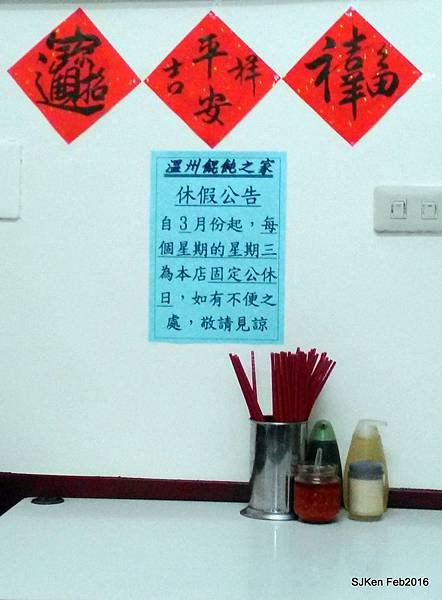 招財進寶
平安
吉祥
禧福
溫州餛飩之家
休假公告
自3月份起，每
個星期的星期三
為本店固定公休
日，如有不便之
處，敬請見諒
SJKen Feb2016